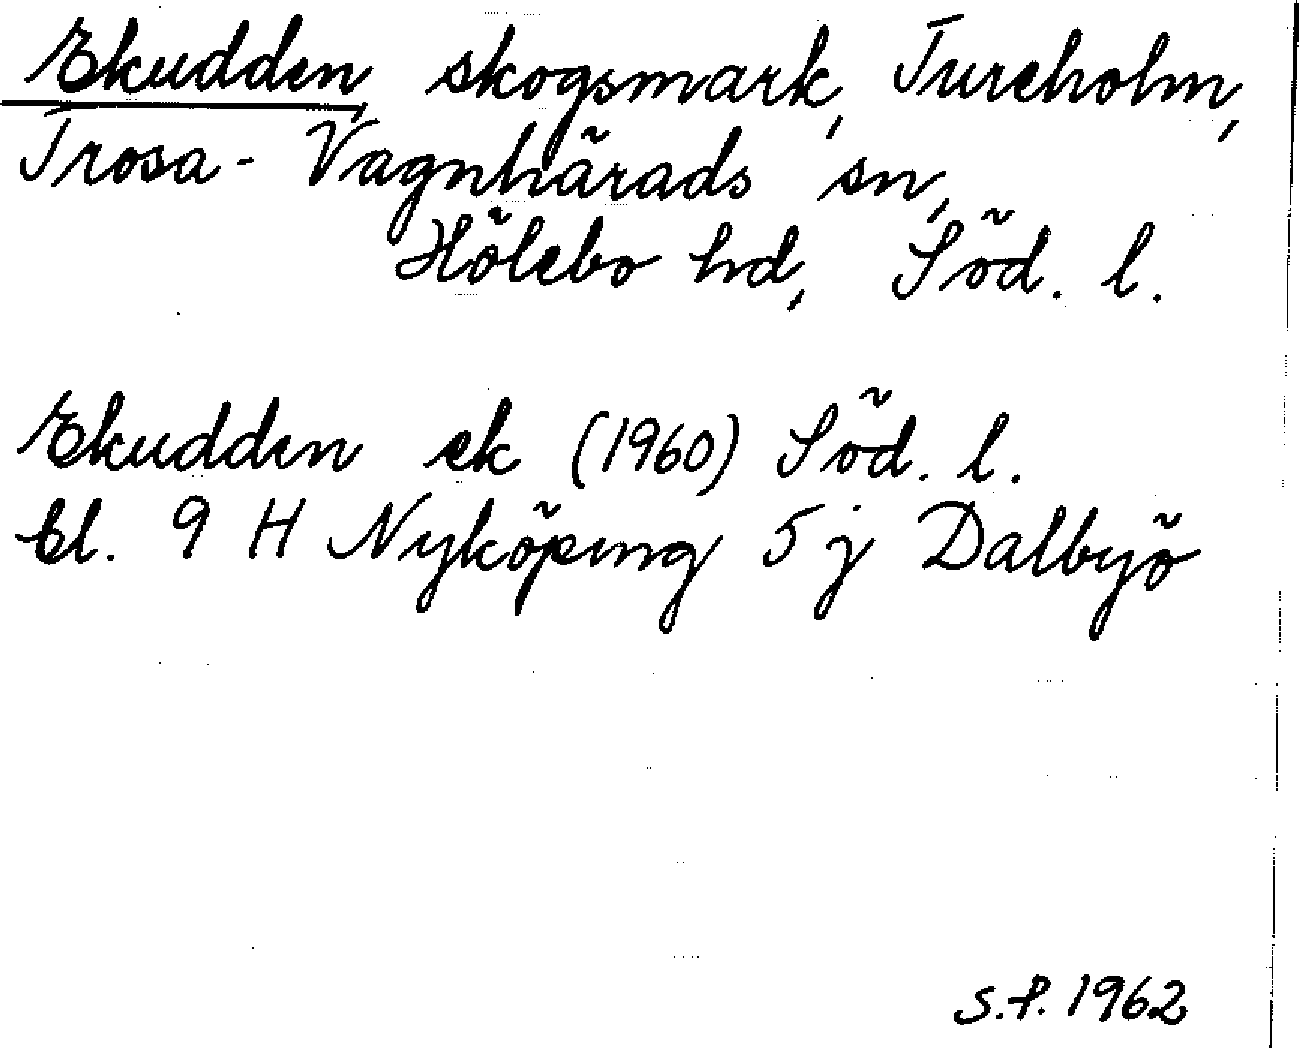 Ekudden, skogsmark, Tureholm,
Trosa-Vagnhärads sn,
Hölebo hd, Söd. l.
Ekudden ek (1960) Söd. l.
bl. 9 H Nyköping 5 j Dalbyö
S.P. 1962